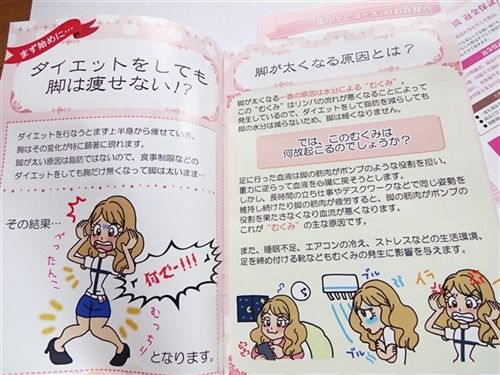 まず始めに…
ダイエットをしても
脚は痩せない!?
ダイエットを行なうとまず上半身から痩せていき、
胸はその変化が特に顕著に現れます。
脚が太い原因は脂肪ではないので、食事制限などの
ダイエットをしても胸だけ無くなって脚は太いまま…
その結果…
ぺったんこ
何でー!!!
むっちり
となります。
"集中ケアコース"のお客様へ
脚が太くなる原因とは?
脚が太くなる一番の原因は水分による"むくみ"。
この"むくみ"はリンパの流れが悪くなることによって
発生しているので、ダイエットをして脂肪を減らしても
脚の水分は減らないため、脚は細くなりません。
では、このむくみは
何故起こるのでしょうか?
足に行った血液は脚の筋肉がポンプのような役割を担い、
重力に逆らって血液を心臓に戻そうとします。
しかし、長時間の立ち仕事やデスクワークなどで同じ姿勢を
維持し続けたり脚の筋肉が疲労すると、脚の筋肉がポンプの
役割を果たさなくなり血流が悪くなります。
これが"むくみ"の主な原因です。
また、睡眠不足、エアコンの冷え、ストレスなどの生活環境、
足を締め付ける靴などもむくみの発生に影響を与えます。
ブル
ブル
イラ
イラ